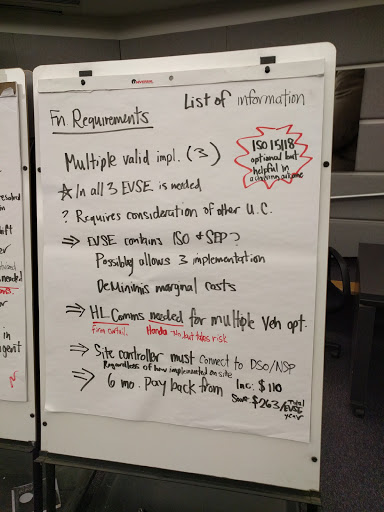 Fn. Requirements
List of information
ISO 15118
optional but
helpful in
Multiple valid impl. (3)
☆ In all 3 EVSE is needed
? Requires consideration of other U.C.
⇒ EVSE contains ISO & SEP?
Possibly allows 3 implementation
DeMinimis marginal costs
⇒ HL Comms needed for multiple Veh opt.
Honda - No, but takes risk
⇒ Site controller must connect to DSO/NSP
Regardless of how implemented on site
⇒ 6 mo. Pay back from Inc. $110
Save $263/EVSE
year
needed
in